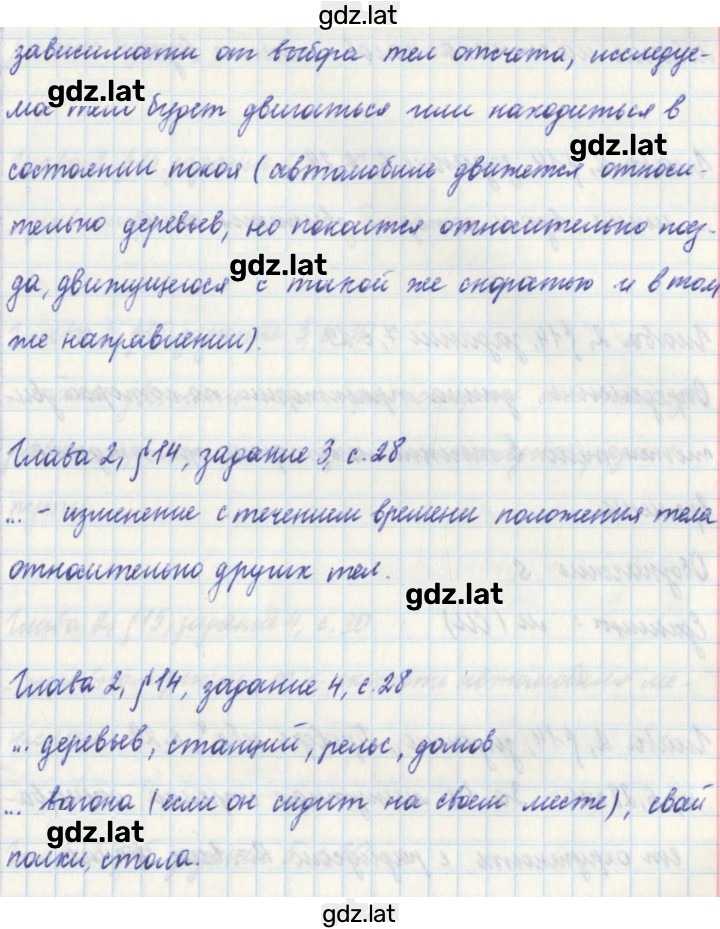 gdz.lat
зависимости от выбора тел отсчета, исследуе-
gdz.lat
мое тело будет двигаться или находиться в
gdz.lat
состоянии покоя (автомобиль движется относи-
тельно деревьев, но покоится относительно поез-
gdz.lat
да, движущегося с такой же скоростью и в том
же направлении).
Глава 2, §14, задание 3, с. 28
... - изменение с течением времени положения тела
относительно других тел.
gdz.lat
Глава 2, §14, задание 4, с. 28
... деревьев, станций, рельс, домов
... вагона (если он сидит на своем месте), свай
gdz.lat
полки, стола.
gdz.lat